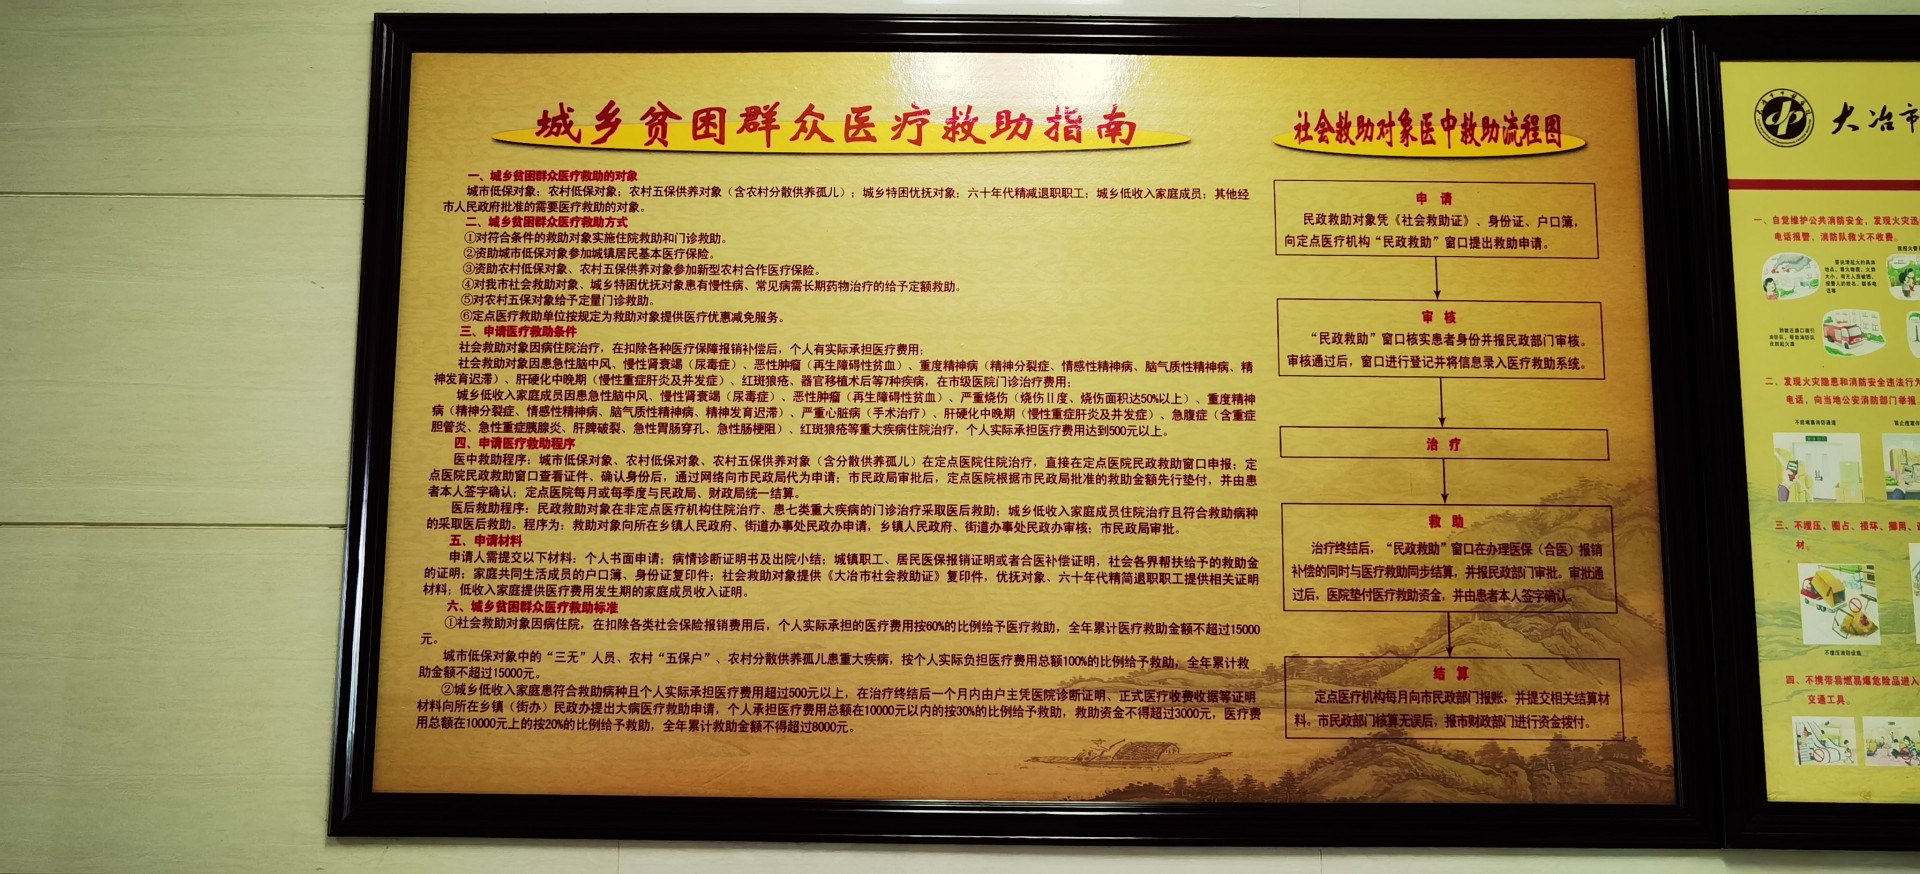 城乡贫困群众医疗救助指南
一、城乡贫困群众医疗救助的对象
城市低保对象；农村低保对象；农村五保供养对象（含农村分散供养孤儿）；城乡特困优抚对象；六十年代精减退职职工；城乡低收入家庭成员；其他经
市人民政府批准的需要医疗救助的对象。
二、城乡贫困群众医疗救助方式
①对符合条件的救助对象实施住院救助和门诊救助。
②资助城市低保对象参加城镇居民基本医疗保险。
③资助农村低保对象、农村五保供养对象参加新型农村合作医疗保险。
④对我市社会救助对象、城乡特困优抚对象患有慢性病、常见病需长期药物治疗的给予定额救助。
⑤对农村五保对象给予定量门诊救助。
⑥定点医疗救助单位按规定为救助对象提供医疗优惠减免服务。
三、申请医疗救助条件
社会救助对象因病住院治疗，在扣除各种医疗保障报销补偿后，个人有实际承担医疗费用；
社会救助对象因患急性脑中风、慢性肾衰竭（尿毒症）、恶性肿瘤（再生障碍性贫血）、重度精神病（精神分裂症、情感性精神病、脑气质性精神病、精
神发育迟滞）、肝硬化中晚期（慢性重症肝炎及并发症）、红斑狼疮、器官移植术后等7种疾病，在市级医院门诊治疗费用；
城乡低收入家庭成员因患急性脑中风、慢性肾衰竭（尿毒症）、恶性肿瘤（再生障碍性贫血）、严重烧伤（烧伤Ⅱ度、烧伤面积达50%以上）、重度精神
病（精神分裂症、情感性精神病、脑气质性精神病、精神发育迟滞）、严重心脏病（手术治疗）、肝硬化中晚期（慢性重症肝炎及并发症）、急腹症（含重症
胆管炎、急性重症胰腺炎、肝脾破裂、急性胃肠穿孔、急性肠梗阻）、红斑狼疮等重大疾病住院治疗，个人实际承担医疗费用达到500元以上。
四、申请医疗救助程序
医中救助程序：城市低保对象、农村低保对象、农村五保供养对象（含分散供养孤儿）在定点医院住院治疗，直接在定点医院民政救助窗口申报；定
点医院民政救助窗口查看证件、确认身份后，通过网络向市民政局代为申请；市民政局审批后，定点医院根据市民政局批准的救助金额先行垫付，并由患
者本人签字确认；定点医院每月或每季度与民政局、财政局统一结算。
医后救助程序：民政救助对象在非定点医疗机构住院治疗、患七类重大疾病的门诊治疗采取医后救助；城乡低收入家庭成员住院治疗且符合救助病种
的采取医后救助。程序为：救助对象向所在乡镇人民政府、街道办事处民政办申请，乡镇人民政府、街道办事处民政办审核；市民政局审批。
五、申请材料
申请人需提交以下材料：个人书面申请；病情诊断证明书及出院小结；城镇职工、居民医保报销证明或者合医补偿证明，社会各界帮扶给予的救助金
的证明；家庭共同生活成员的户口簿、身份证复印件；社会救助对象提供《大冶市社会救助证》复印件，优抚对象、六十年代精简退职职工提供相关证明
材料；低收入家庭提供医疗费用发生期的家庭成员收入证明。
六、城乡贫困群众医疗救助标准
①社会救助对象因病住院，在扣除各类社会保险报销费用后，个人实际承担的医疗费用按60%的比例给予医疗救助，全年累计医疗救助金额不超过15000
元。
城市低保对象中的“三无”人员、农村“五保户”、农村分散供养孤儿患重大疾病，按个人实际负担医疗费用总额100%的比例给予救助，全年累计救
助金额不超过15000元。
②城乡低收入家庭患符合救助病种且个人实际承担医疗费用超过500元以上，在治疗终结后一个月内由户主凭医院诊断证明、正式医疗收费收据等证明
材料向所在乡镇（街办）民政办提出大病医疗救助申请，个人承担医疗费用总额在10000元以内的按30%的比例给予救助，救助资金不得超过3000元，医疗费
用总额在10000元上的按20%的比例给予救助，全年累计救助金额不得超过8000元。
社会救助对象医中救助流程图
申 请
民政救助对象凭《社会救助证》、身份证、户口簿，
向定点医疗机构“民政救助”窗口提出救助申请。
审 核
“民政救助”窗口核实患者身份并报民政部门审核。
审核通过后，窗口进行登记并将信息录入医疗救助系统。
治 疗
救 助
治疗终结后，“民政救助”窗口在办理医保（合医）报销
补偿的同时与医疗救助同步结算，并报民政部门审批。审批通
过后，医院垫付医疗救助资金，并由患者本人签字确认。
结 算
定点医疗机构每月向市民政部门报账，并提交相关结算材
料。市民政部门核算无误后，报市财政部门进行资金拨付。
大冶市
一、自觉维护公共消防安全，发现火灾迅
电话报警，消防队救火不收费。
二、发现火灾隐患和消防安全违法行为
电话，向当地公安消防部门举报。
不放堵塞消防通道
三、不埋压、圈占、损坏、挪用、
材。
不埋压消防设施
四、不携带易燃易爆危险品进入
交通工具。